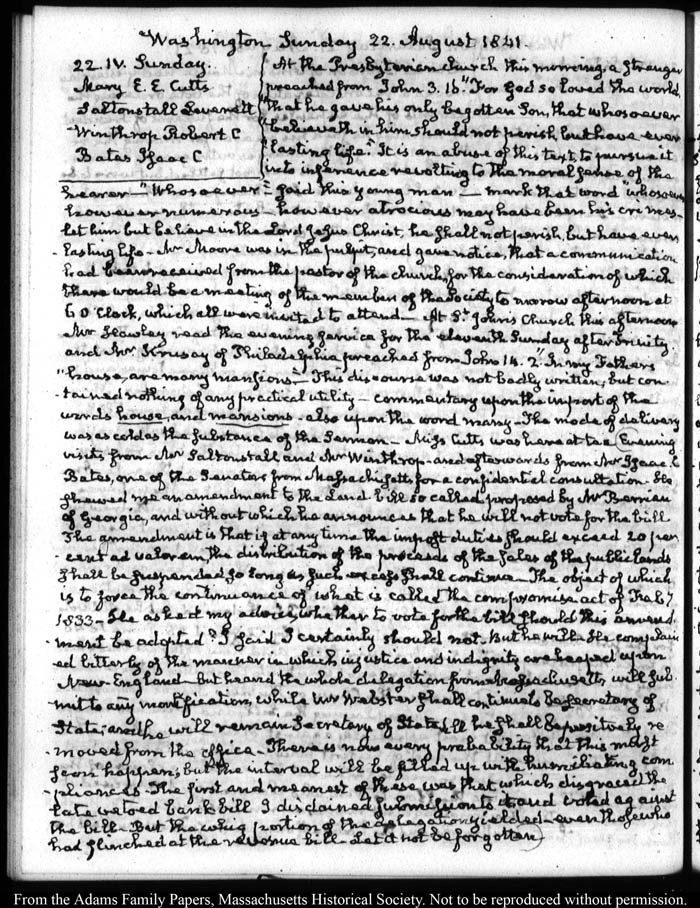 Washington Sunday 22. August 1841
22. IV. Sunday.
Mary E. E. Cutts
Saltonstall Leverett
Winthrop Robert C
Bates Isaac C
At the Presbyterian church this morning, a stranger
preached from John 3. 16 "For God so loved the world,
"that he gave his only begotten Son, that whosoever
"believeth in him should not perish, but have ever
"lasting life." It is an abuse of this text to pursue it
into inference revolting to the moral sense of the
hearer — "Whosoever" said this young man — mark that word "whosoever
however numerous — however atrocious may have been his crimes —
let him but believe in the Lord Jesus Christ, he shall not perish, but have ever
-lasting life — Mr Moore was in the pulpit, and gave notice, that a communication
had been received from the pastor of the church, for the consideration of which
there would be a meeting of the members of the Society to morrow afternoon at
6 O'Clock, which all were invited to attend — At St John's Church this afternoon
Mr Hawley read the evening service for the eleventh Sunday after Trinity
and Mr of Philadelphia preached from John 14. 2 "In my Fathers
"house, are many mansions" — This discourse was not badly written, but con
-tained nothing of any practical utility — commentary upon the import of the
words house, and mansions — also upon the word many — The mode of delivery
was as cold as the substance of the Sermon — Miss Cutts was here at tea (Evening
visits from Mr Saltonstall and Mr Winthrop — and afterwards from Mr Isaac C
Bates, one of the Senators from Massachusetts for a confidential consultation — He
shewed me an amendment to the Land bill so called, proposed by Mr Berrien
of Georgia, and without which he announces that he will not vote for the bill
The amendment is that if at any time the impost duties should exceed 20 per
cent ad valorem, the distribution of the proceeds of the sales of the public lands
shall be suspended, so long as such excess shall continue — The object of which
is to force the continuance of what is called the compromise act of Feby
1833 — He asked my advice, whether to vote for the bill should this amend
-ment be adopted? I said I certainly should not. But he will — He complain
-ed bitterly of the manner in which injustice and indignity are heaped upon
New-England — but heard the whole delegation from Massachusetts, will sub
-mit to any mortification, while Mr Webster shall continue to be Secretary of
State; and he will remain Secretary of State till he shall be positively re
-moved from the office — There is now every probability that this must
soon happen; but the interval will be filled up with humiliating com
-pliances — The first and meanest of these was that which disgraced the
late vetoed bank bill I disdained submission to it and voted against
the bill — But the whig portion of the delegation yielded — even those who
had flinched at the revenue bill — Let it not be forgotten)
From the Adams Family Papers, Massachusetts Historical Society. Not to be reproduced without permission.